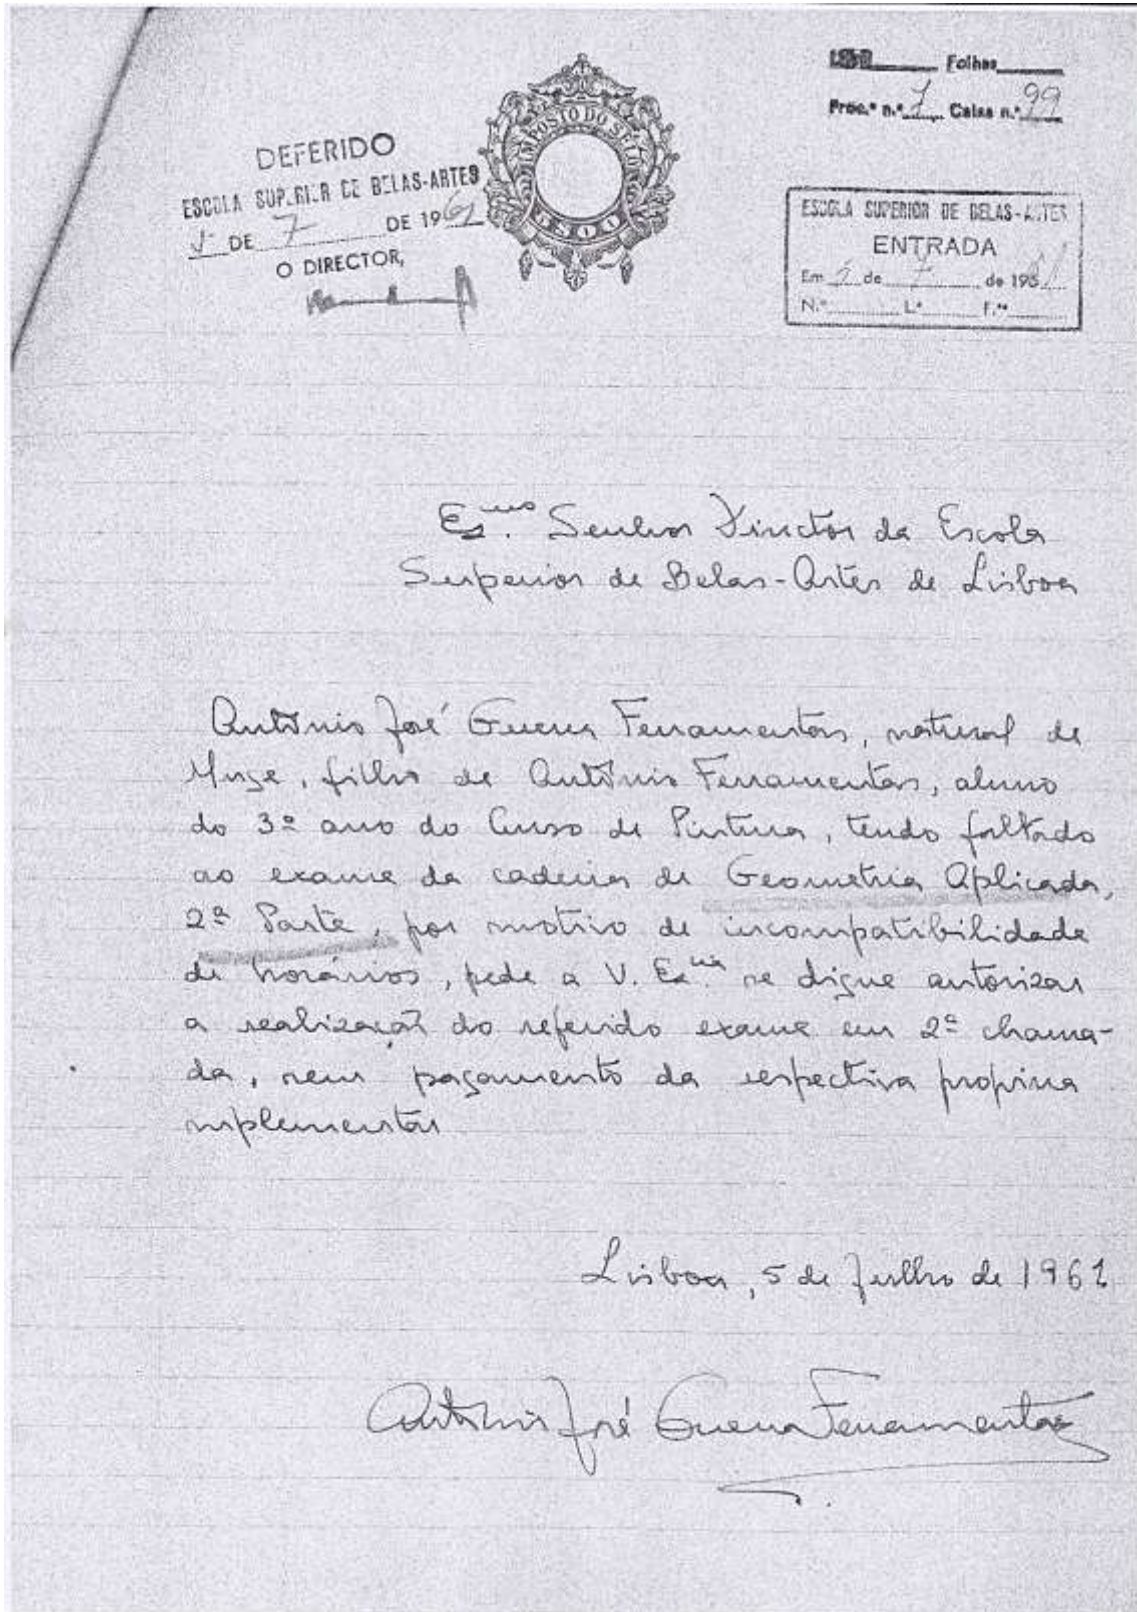 Folhas
Proc.º n.º 7 Caixa n.º 99
DEFERIDO
ESCOLA SUPERIOR DE BELAS-ARTES
5 DE 7 DE 1961
O DIRECTOR,
IMPOSTO DO SELO
5$00
ESCOLA SUPERIOR DE BELAS-ARTES
ENTRADA
Em 5 de 7 de 1961
N.º L.º F.ªˢ
Ex.ᵐᵒ Senhor Director da Escola
Superior de Belas-Artes de Lisboa
António José Guerra Ferramentas, natural de
Muge, filho de António Ferramentas, aluno
do 3º ano do Curso de Pintura, tendo faltado
ao exame da cadeira de Geometria Aplicada,
2ª Parte, por motivo de incompatibilidade
de horários, pede a V. Ex.ᶜⁱᵃ se digne autorizar
a realização do referido exame em 2ª chama-
da, sem pagamento da respectiva propina
suplementar
Lisboa, 5 de Julho de 1961
António José Guerra Ferramentas